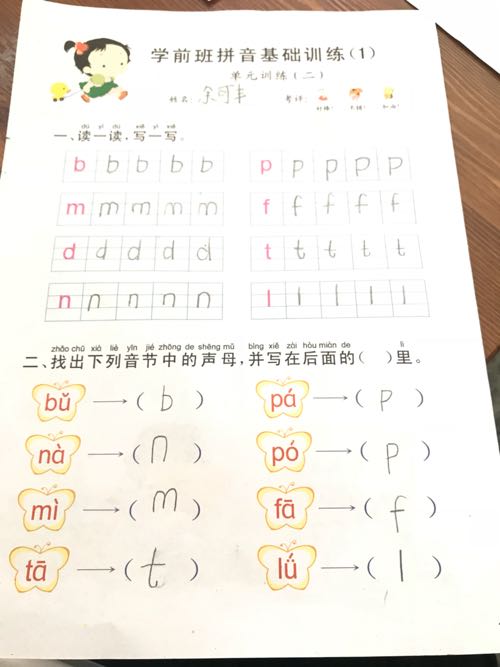 学前班拼音基础训练(1)
单元训练(二)
姓名: 考评: 好棒! 不错! 加油!
dú yì dú xiě yì xiě
一、读一读,写一写。
b b b b b p p p p p
m m m m m f f f f f
d d d d d t t t t t
n n n n n l l l l l
zhǎo chū xià liè yīn jié zhōng de shēng mǔ bìng xiě zài hòu miàn de lǐ
二、找出下列音节中的声母,并写在后面的( )里。
bǔ → ( b ) pá → ( p )
nà → ( n ) pó → ( p )
mì → ( m ) fā → ( f )
tā → ( t ) lǘ → ( l )